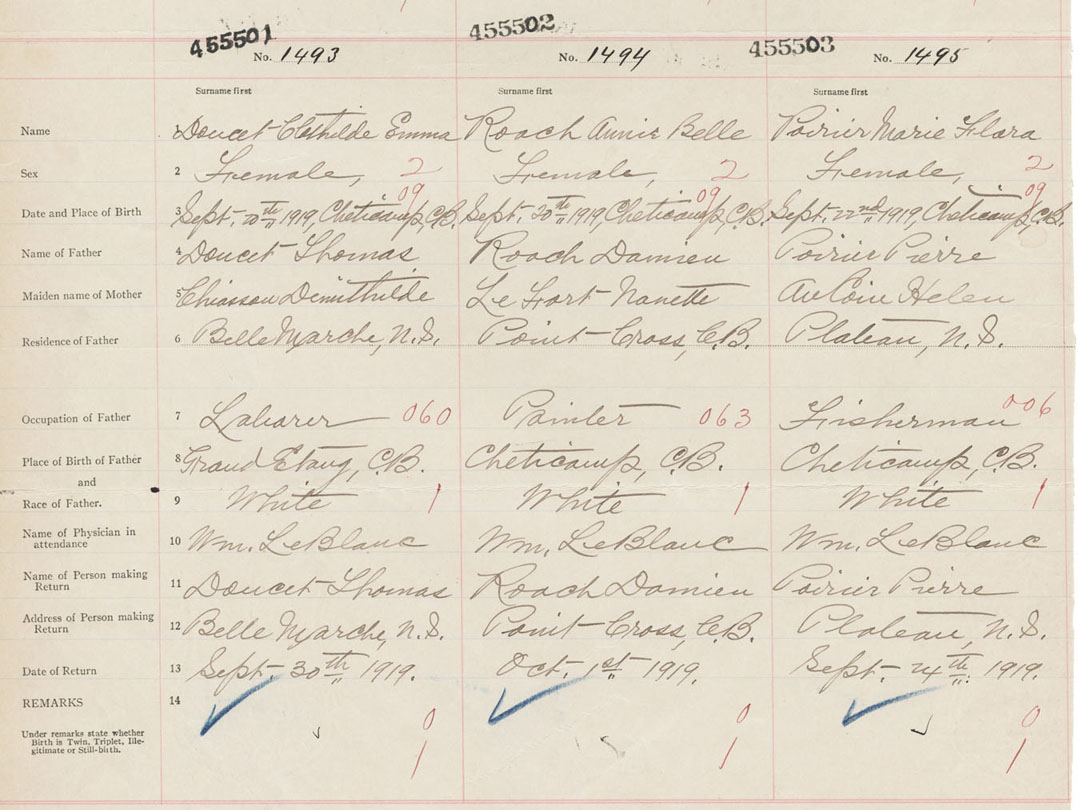 455501 455502 455503
No. 1493 No. 1494 No. 1495
Surname first Surname first Surname first
Name 1 Doucet Clothilde Emma Roach Annie Belle Poirier Marie Flora
Sex 2 Female, 2 Female, 2 Female, 2
09 09 09
Date and Place of Birth 3 Sept. 20th 1919, Cheticamp, C.B. Sept. 30th 1919, Cheticamp, C.B. Sept. 22nd 1919, Cheticamp, C.B.
Name of Father 4 Doucet Thomas Roach Damien Poirier Pierre
Maiden name of Mother 5 Chiasson Demithilde Le Fort Nanette AuCoin Helen
Residence of Father 6 Belle Marche, N.S. Point Cross, C.B. Plateau, N.S.
Occupation of Father 7 Laborer 060 Painter 063 Fisherman 006
Place of Birth of Father 8 Grand Etang, C.B. Cheticamp, C.B. Cheticamp, C.B.
and
Race of Father. 9 White 1 White 1 White 1
Name of Physician in
attendance 10 Wm. LeBlanc Wm. LeBlanc Wm. LeBlanc
Name of Person making
Return 11 Doucet Thomas Roach Damien Poirier Pierre
Address of Person making
Return 12 Belle Marche, N.S. Point Cross, C.B. Plateau, N.S.
Date of Return 13 Sept. 30th 1919. Oct. 1st 1919. Sept. 24th 1919.
REMARKS 14
0 0 0
Under remarks state whether
Birth is Twin, Triplet, Ille-
gitimate or Still-birth.
1 1 1